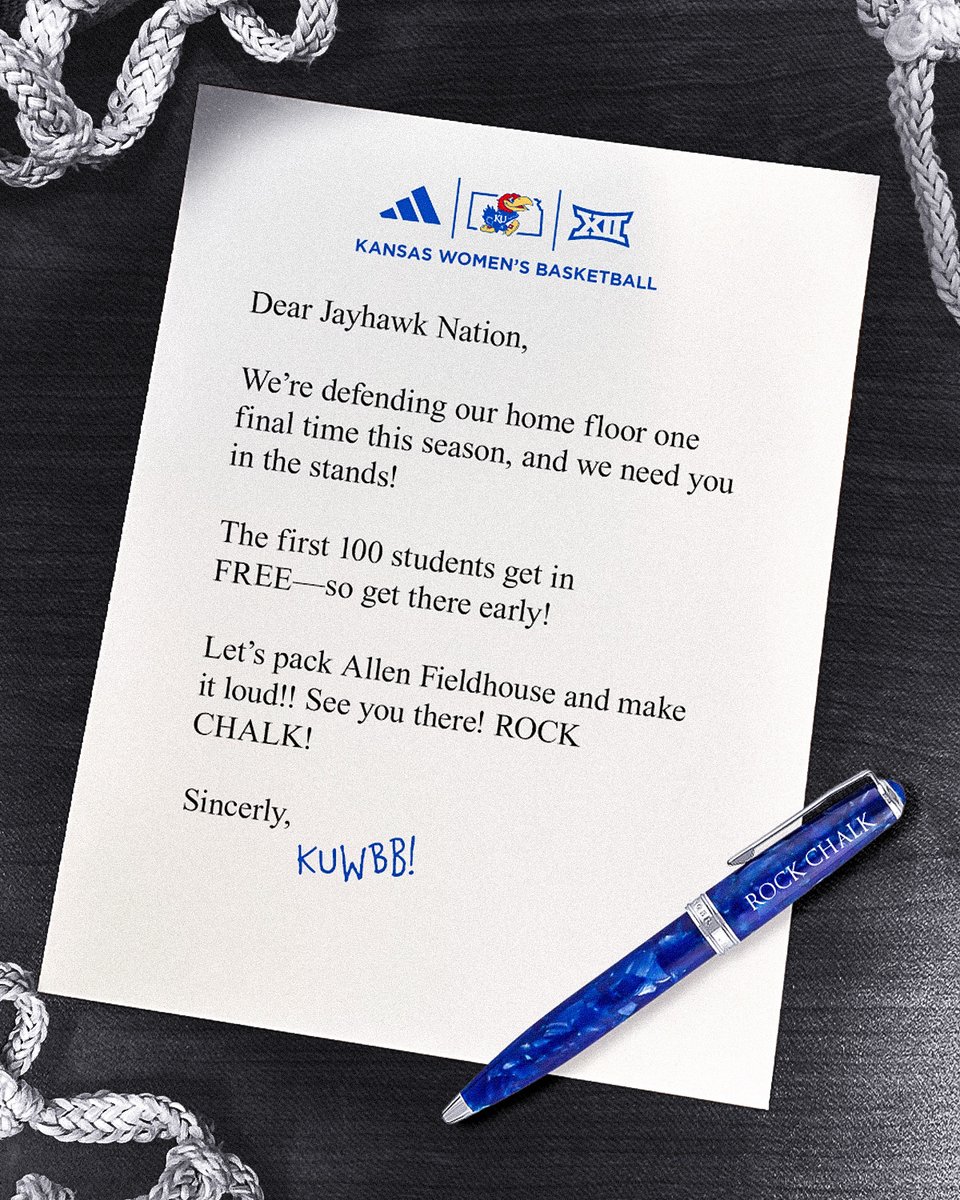 KU
XII
KANSAS WOMEN'S BASKETBALL
Dear Jayhawk Nation,
We're defending our home floor one
final time this season, and we need you
in the stands!
The first 100 students get in
FREE—so get there early!
Let's pack Allen Fieldhouse and make
it loud!! See you there! ROCK
CHALK!
Sincerely,
KUWBB!
ROCK CHALK